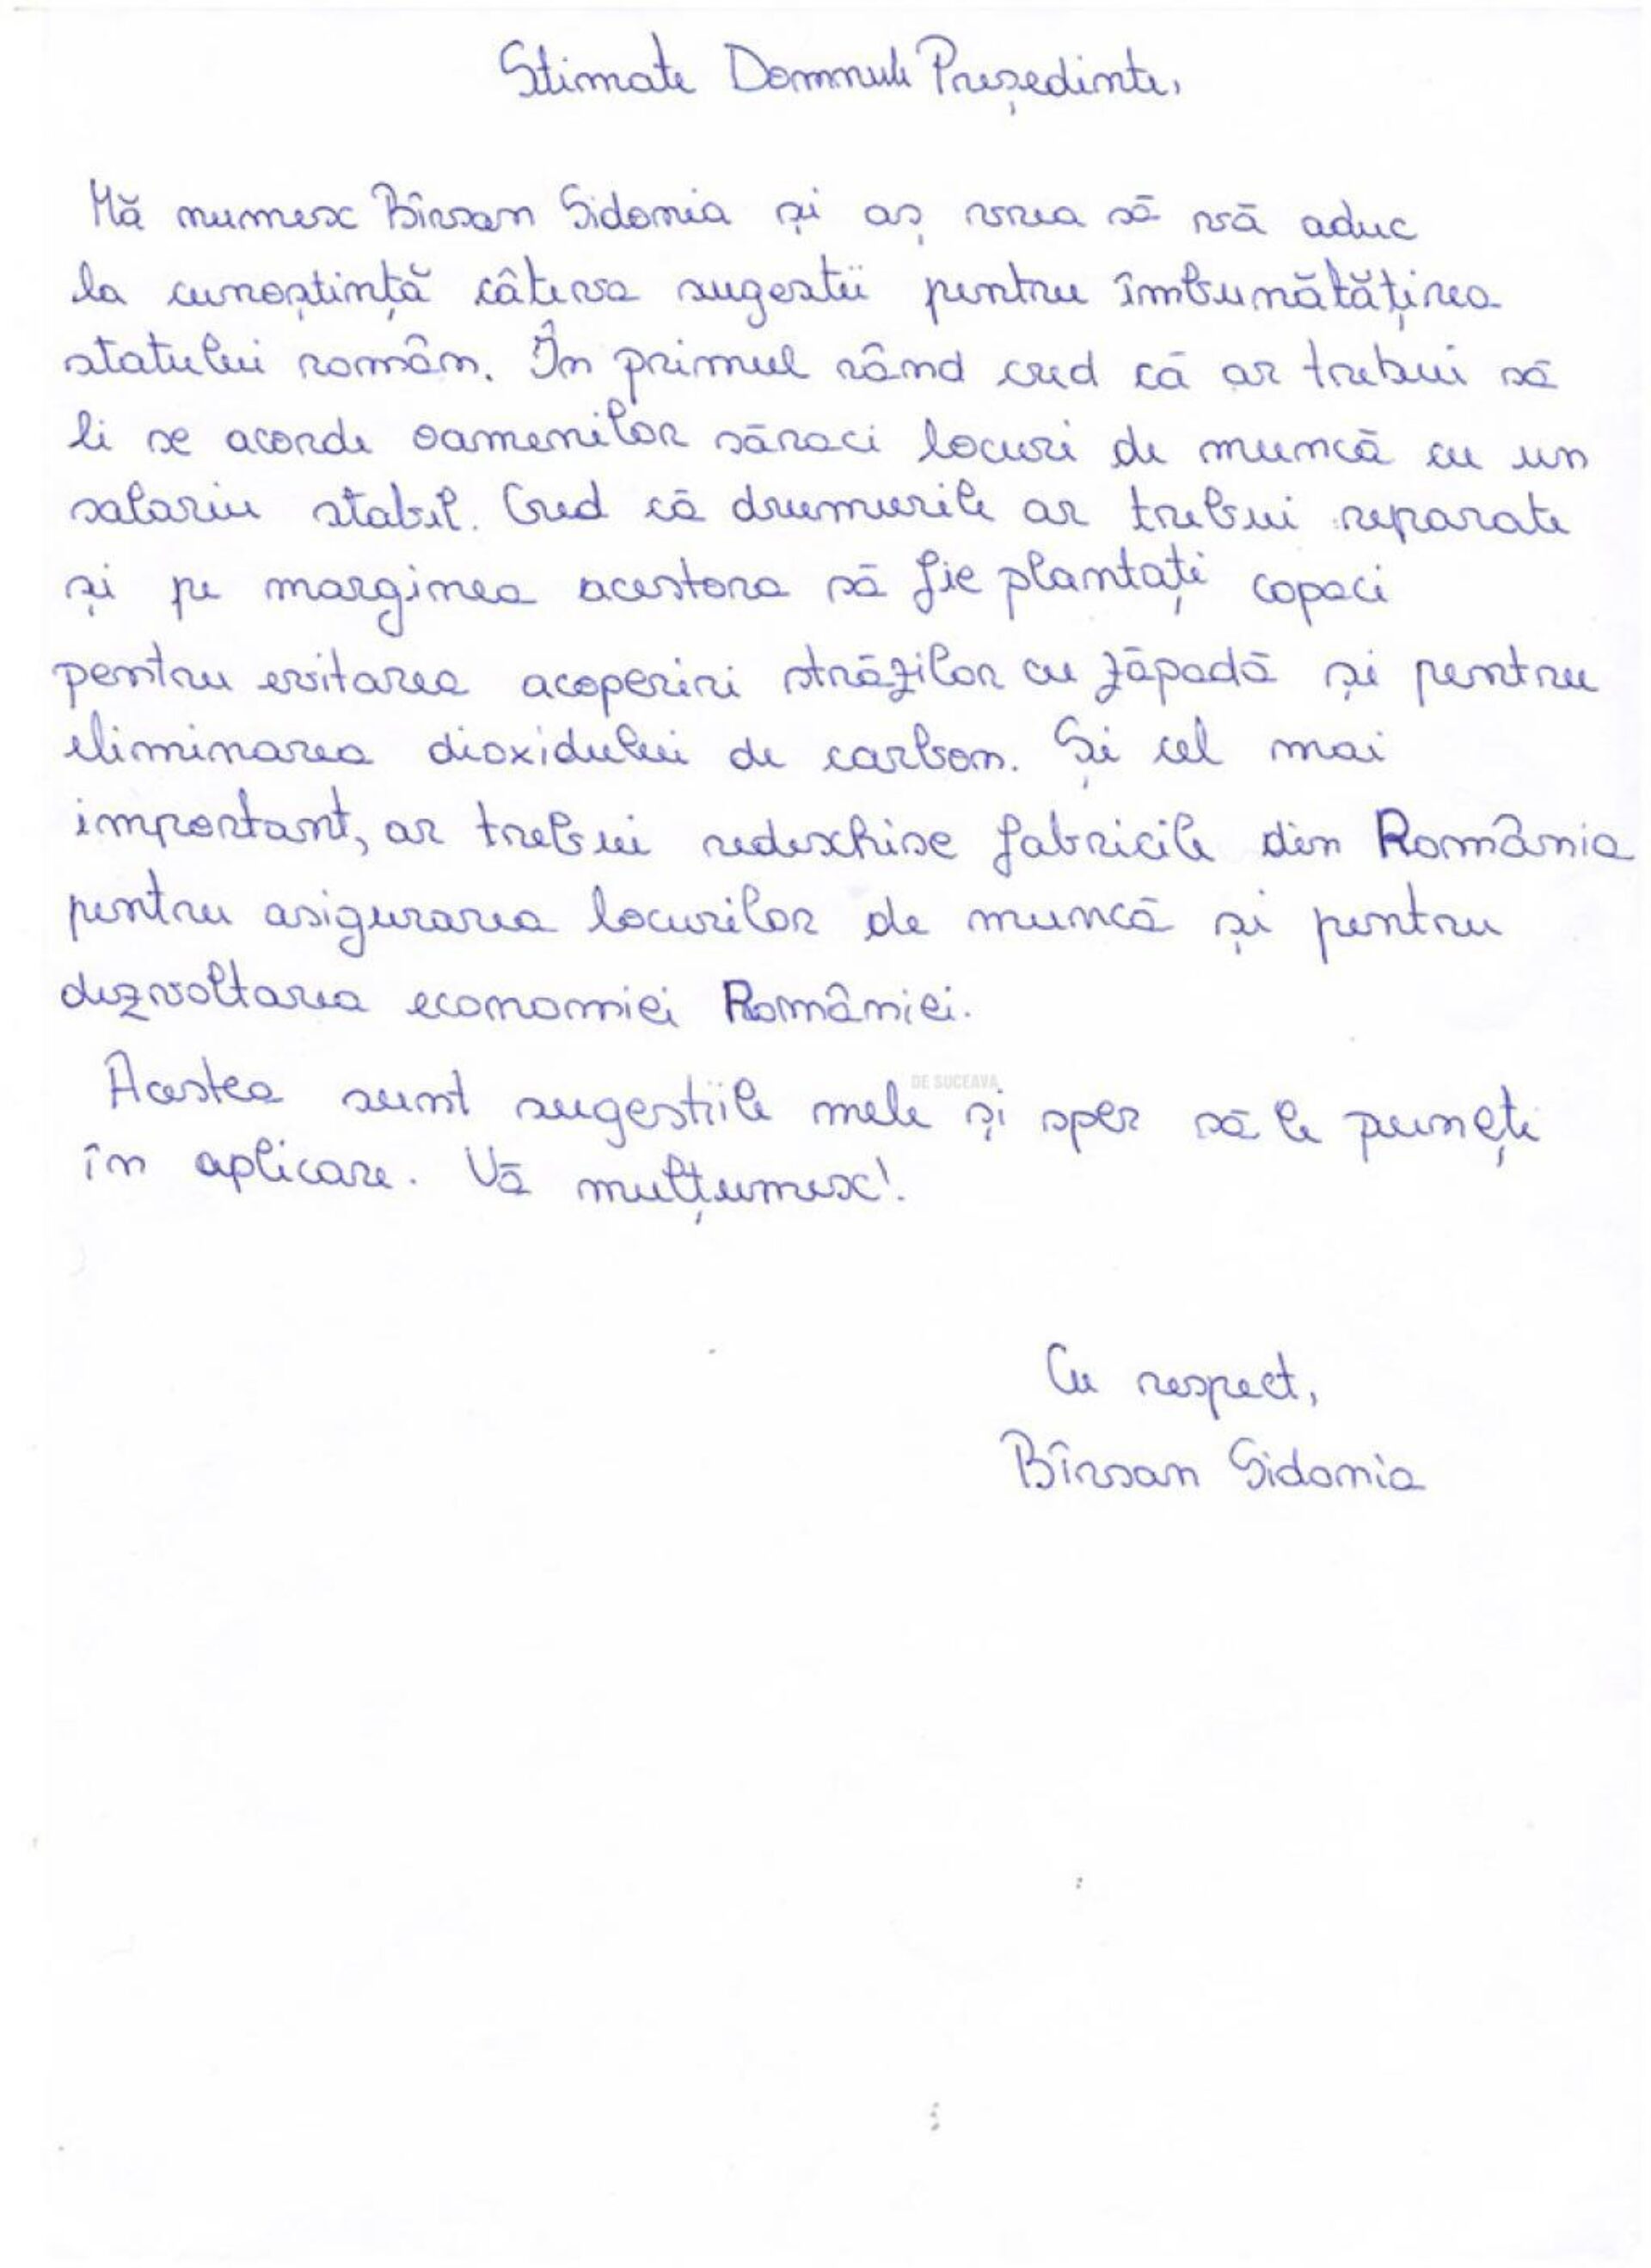 Stimate Domnule Președinte,
Mă numesc Bîrsan Sidonia și aș vrea să vă aduc
la cunoștință câteva sugestii pentru îmbunătățirea
statului român. În primul rând cred că ar trebui să
li se acorde oamenilor săraci locuri de muncă cu un
salariu stabil. Cred că drumurile ar trebui reparate
și pe marginea acestora să fie plantați copaci
pentru evitarea acoperiri străzilor cu zăpadă și pentru
eliminarea dioxidului de carbon. Și cel mai
important, ar trebui redeschise fabricile din România
pentru asigurarea locurilor de muncă și pentru
dezvoltarea economiei României.
DE SUCEAVA
Acestea sunt sugestiile mele și sper să le puneți
în aplicare. Vă mulțumesc!
Cu respect,
Bîrsan Sidonia